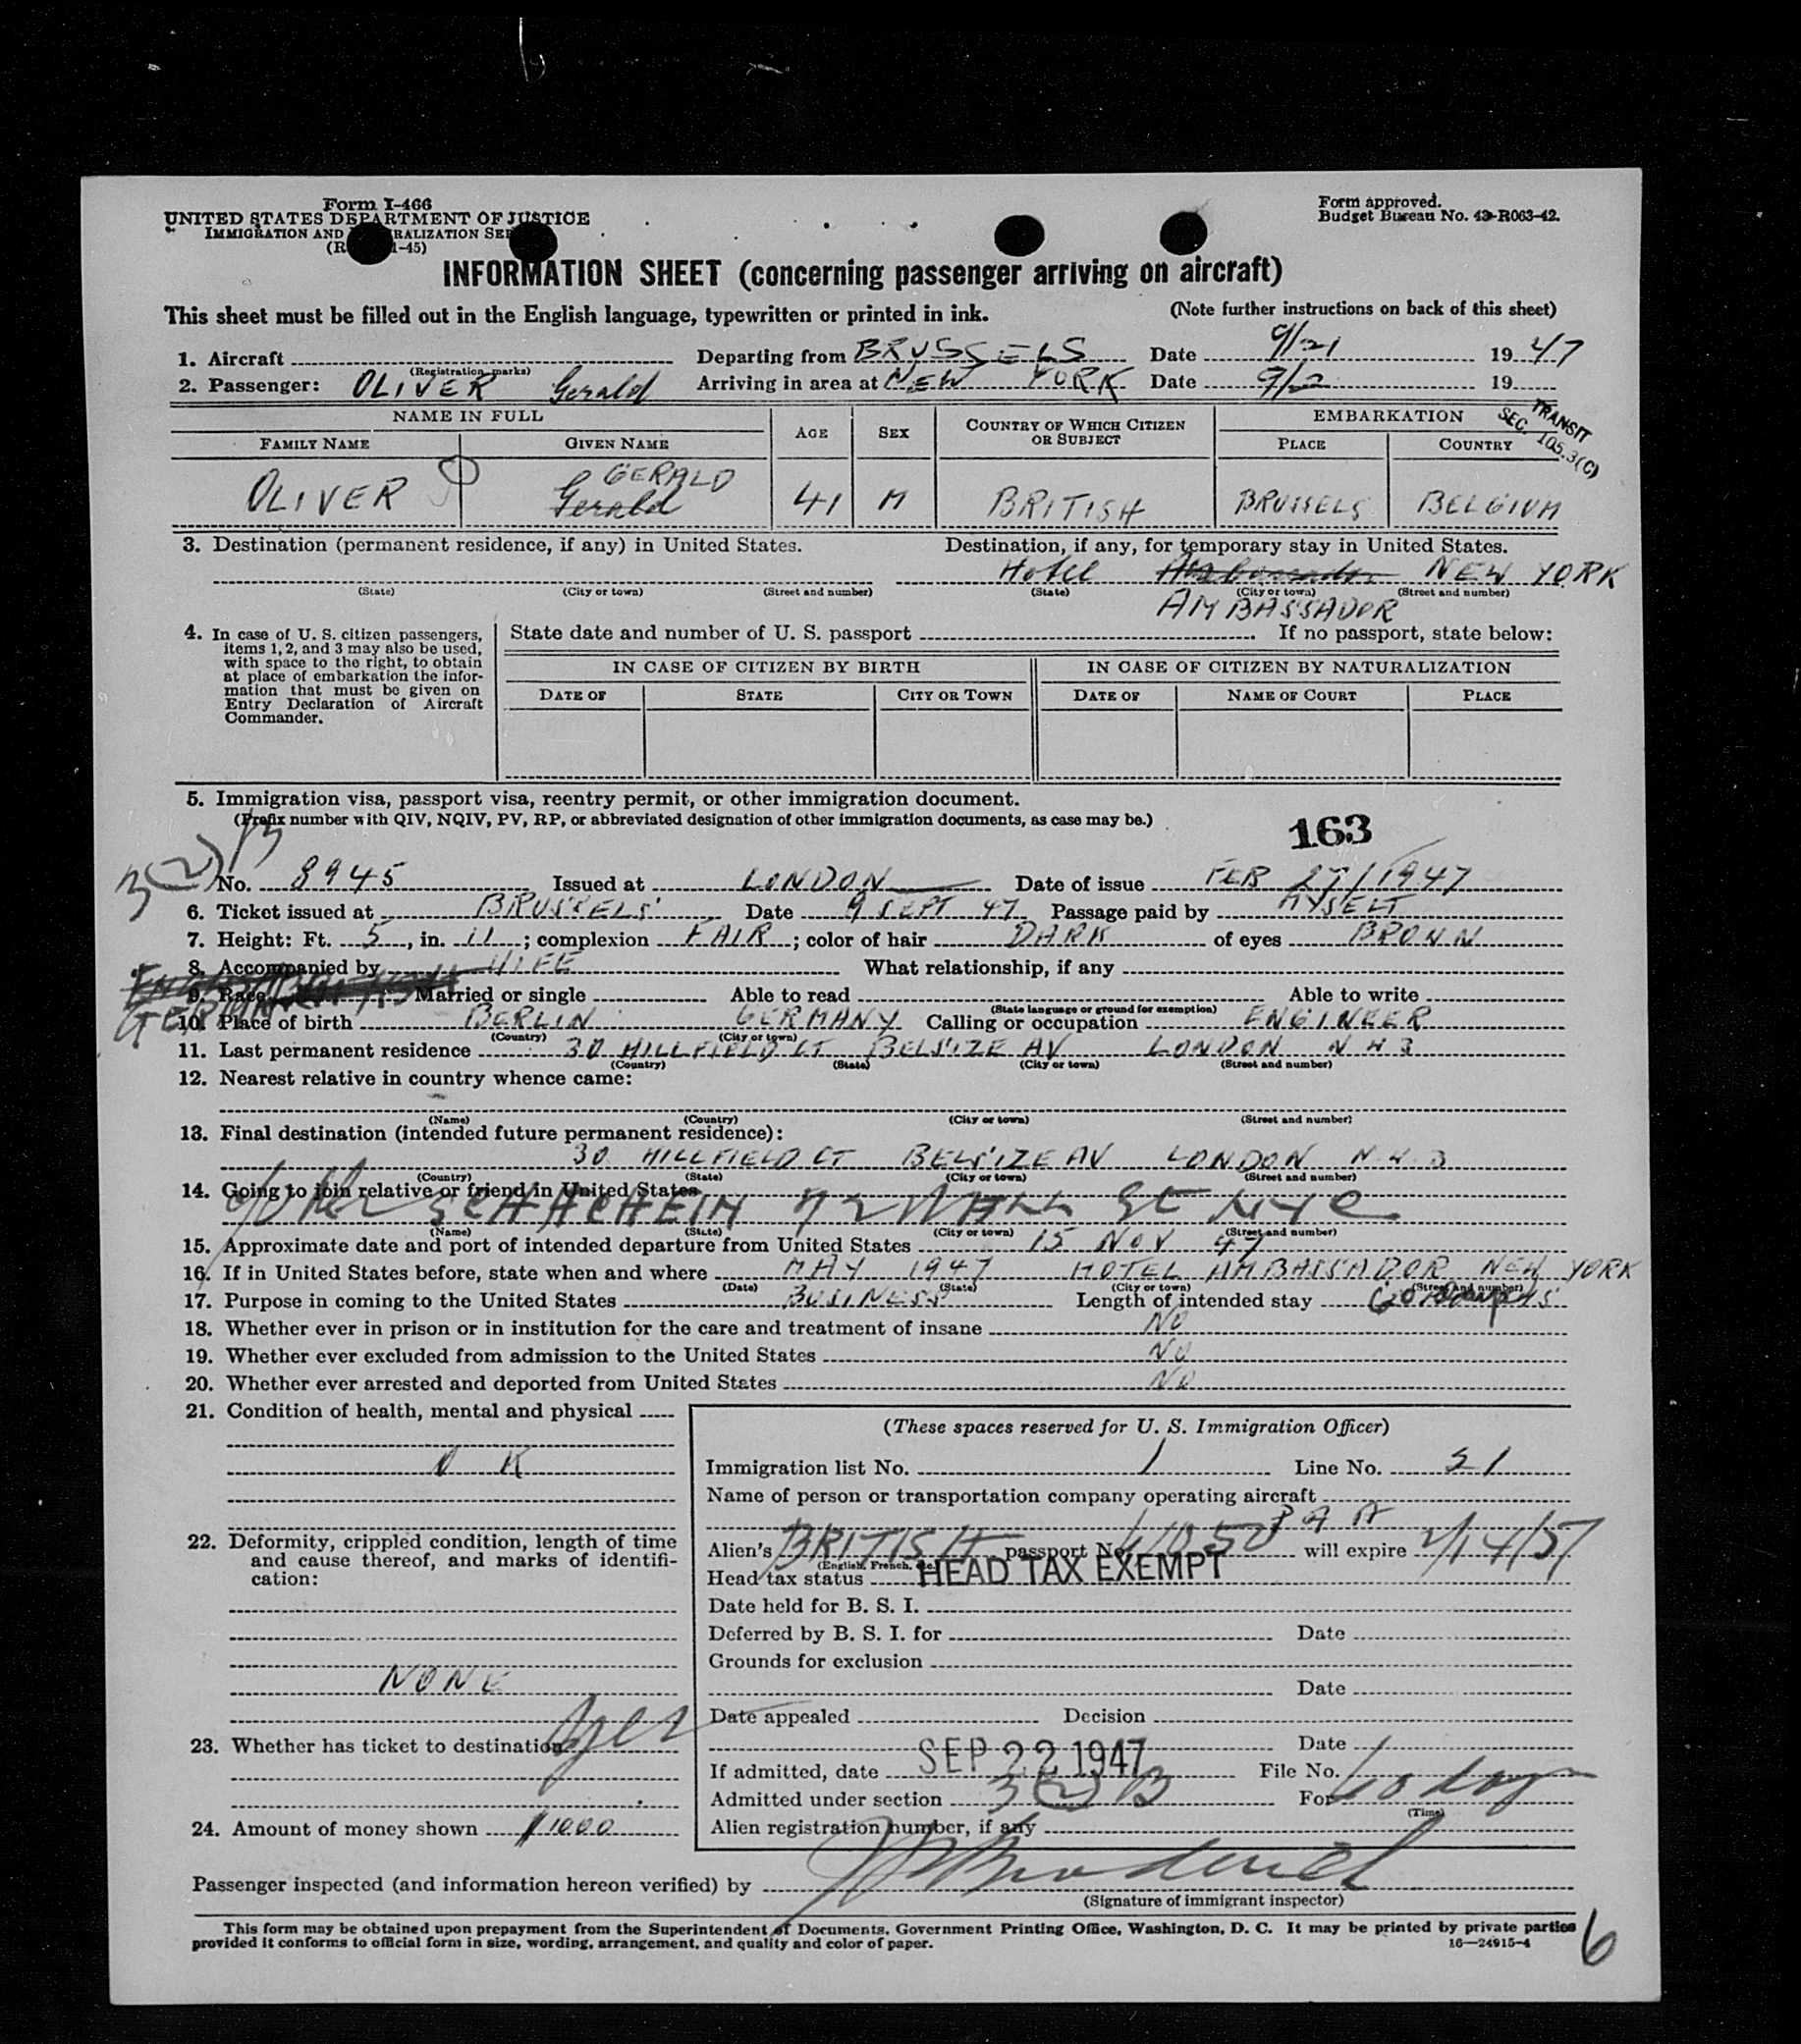 Form I-466
UNITED STATES DEPARTMENT OF JUSTICE
IMMIGRATION AND NATURALIZATION SER
(R 1-45)
Form approved.
Budget Bureau No. 43-R063-42.
INFORMATION SHEET (concerning passenger arriving on aircraft)
This sheet must be filled out in the English language, typewritten or printed in ink. (Note further instructions on back of this sheet)
1. Aircraft (Registration marks) Departing from BRUSSELS Date 9/21 1947
2. Passenger: OLIVER Gerald Arriving in area at NEW YORK Date 9/22 19
TRANSIT SEC. 105.3(C)
NAME IN FULL AGE SEX COUNTRY OF WHICH CITIZEN OR SUBJECT EMBARKATION
FAMILY NAME GIVEN NAME PLACE COUNTRY
GERALD
OLIVER Gerald 41 M BRITISH BRUSSELS BELGIUM
3. Destination (permanent residence, if any) in United States. Destination, if any, for temporary stay in United States.
Hotel Ambassador NEW YORK
(State) (City or town) (Street and number) (State) (City or town) (Street and number)
AMBASSADOR
4. In case of U. S. citizen passengers, items 1, 2, and 3 may also be used, with space to the right, to obtain at place of embarkation the information that must be given on Entry Declaration of Aircraft Commander.
State date and number of U. S. passport If no passport, state below:
IN CASE OF CITIZEN BY BIRTH IN CASE OF CITIZEN BY NATURALIZATION
DATE OF STATE CITY OR TOWN DATE OF NAME OF COURT PLACE
5. Immigration visa, passport visa, reentry permit, or other immigration document.
(Prefix number with QIV, NQIV, PV, RP, or abbreviated designation of other immigration documents, as case may be.)
163
3(2)B
No. 8945 Issued at LONDON Date of issue FEB 27/1947
6. Ticket issued at BRUSSELS Date 9 SEPT 47 Passage paid by MYSELF
7. Height: Ft. 5, in. 11; complexion FAIR; color of hair DARK of eyes BROWN
8. Accompanied by WIFE What relationship, if any
9. Race Married or single Able to read Able to write
(State language or ground for exemption)
GERMAN
10. Place of birth BERLIN GERMANY Calling or occupation ENGINEER
(Country) (City or town)
11. Last permanent residence 30 HILLFIELD CT BELSIZE AV LONDON NW3
(Country) (State) (City or town) (Street and number)
12. Nearest relative in country whence came:
(Name) (Country) (City or town) (Street and number)
13. Final destination (intended future permanent residence):
30 HILLFIELD CT BELSIZE AV LONDON N.W.3
(Country) (State) (City or town) (Street and number)
14. Going to join relative or friend in United States
SCHACHEIN 72 WALL St NYC
(Name) (State) (City or town) (Street and number)
15. Approximate date and port of intended departure from United States 15 NOV 47
16. If in United States before, state when and where MAY 1947 HOTEL AMBASSADOR NEW YORK
(Date) (State) (City or town) (Street and number)
17. Purpose in coming to the United States BUSINESS Length of intended stay 60 DAYS
18. Whether ever in prison or in institution for the care and treatment of insane NO
19. Whether ever excluded from admission to the United States NO
20. Whether ever arrested and deported from United States NO
21. Condition of health, mental and physical
O K
22. Deformity, crippled condition, length of time and cause thereof, and marks of identification:
NONE
23. Whether has ticket to destination yes
24. Amount of money shown $1000
(These spaces reserved for U. S. Immigration Officer)
Immigration list No. 1 Line No. 51
Name of person or transportation company operating aircraft
P A A
Alien's BRITISH passport No. will expire 2/14/57
(English, French, etc.)
Head tax status HEAD TAX EXEMPT
Date held for B. S. I.
Deferred by B. S. I. for Date
Grounds for exclusion
Date
Date appealed Decision
Date
If admitted, date SEP 22 1947 File No.
Admitted under section 3(2)B For 60 days
(Time)
Alien registration number, if any
Passenger inspected (and information hereon verified) by
(Signature of immigrant inspector)
This form may be obtained upon prepayment from the Superintendent of Documents, Government Printing Office, Washington, D. C. It may be printed by private parties
provided it conforms to official form in size, wording, arrangement, and quality and color of paper. 16—24915-4
6